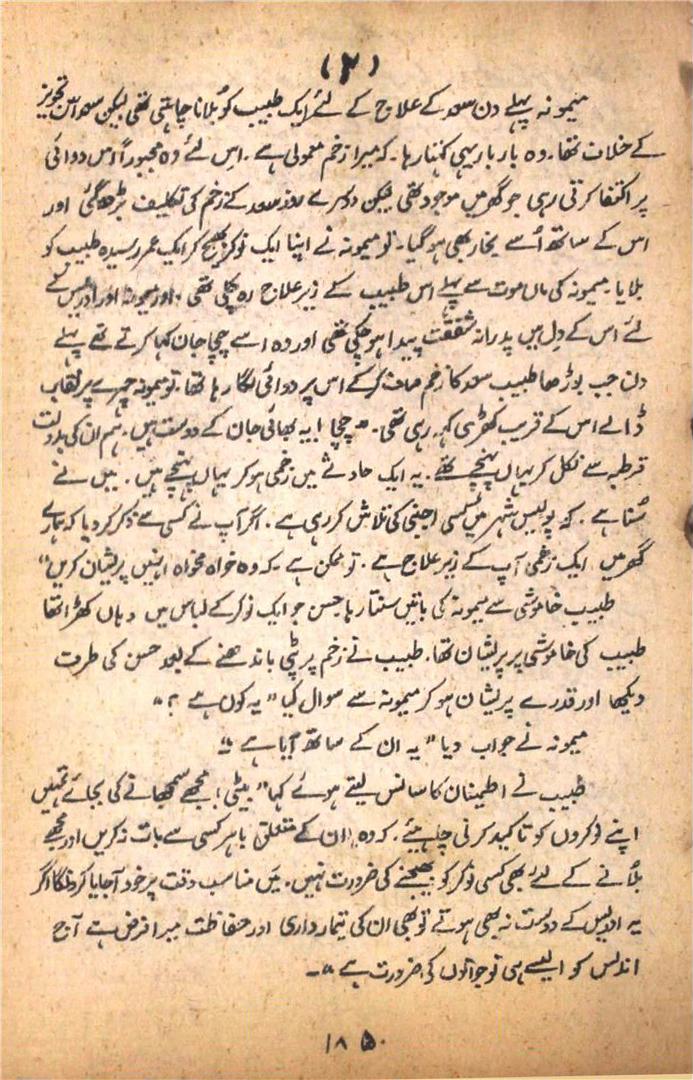 (۲)
میمونہ پہلے دن سعد کے علاج کے لئے ایک طبیب کو بلانا چاہتی تھی لیکن سعد اس تجویز
کے خلاف تھا۔ وہ بار بار یہی کہتا رہا۔ کہ میرا زخم معمولی ہے۔ اس لئے وہ مجبوراً اس دوائی
پر اکتفا کرتی رہی جو گھر میں موجود تھی لیکن دوسرے روز سعد کے زخم کی تکلیف بڑھ گئی اور
اس کے ساتھ اُسے بخار بھی ہو گیا۔ تو میمونہ نے اپنا ایک نوکر بھیج کر ایک عمر رسیدہ طبیب کو
بلایا۔ میمونہ کی ماں موت سے پہلے اس طبیب کے زیر علاج رہ چکی تھی۔ اور میمونہ اور ادریس کے
لئے اس کے دل میں پدرانہ شفقت پیدا ہو چکی تھی اور وہ اسے چچا جان کہا کرتے تھے پہلے
دن جب بوڑھا طبیب سعد کا زخم صاف کر کے اس پر دوائی لگا رہا تھا۔ تو میمونہ چہرے پر نقاب
ڈالے اس کے قریب کھڑی کہہ رہی تھی۔ "چچا! یہ بھائی جان کے دوست ہیں۔ ہم ان کی بدولت
قرطبہ سے نکل کر یہاں پہنچے تھے۔ یہ ایک حادثے میں زخمی ہو کر یہاں پہنچے ہیں۔ میں نے
سُنا ہے۔ کہ پولیس شہر میں کسی اجنبی کی تلاش کر رہی ہے۔ اگر آپ نے کسی سے ذکر کر دیا کہ ہمارے
گھر میں ایک زخمی آپ کے زیر علاج ہے۔ تو ممکن ہے۔ کہ وہ خواہ مخواہ انہیں پریشان کریں"
طبیب خاموشی سے میمونہ کی باتیں سنتا رہا حسن جو ایک نوکر کے لباس میں وہاں کھڑا تھا
طبیب کی خاموشی پر پریشان تھا۔ طبیب نے زخم پر پٹی باندھنے کے بعد حسن کی طرف
دیکھا اور قدرے پریشان ہو کر میمونہ سے سوال کیا "یہ کون ہے؟"
میمونہ نے جواب دیا "یہ ان کے ساتھ آیا ہے۔"
طبیب نے اطمینان کا سانس لیتے ہوئے کہا "بیٹی! مجھے سمجھانے کی بجائے تمہیں
اپنے نوکروں کو تاکید کرنی چاہیئے۔ کہ وہ ان کے متعلق باہر کسی سے بات نہ کریں اور مجھے
بلانے کے لئے بھی کسی نوکر کو بھیجنے کی ضرورت نہیں۔ میں مناسب وقت پر خود آجایا کروں گا اگر
یہ ادریس کے دوست نہ بھی ہوتے تو بھی ان کی تیمارداری اور حفاظت میرا فرض ہے آج
اندلس کو ایسے ہی نوجوانوں کی ضرورت ہے"۔
۱۸۵۰